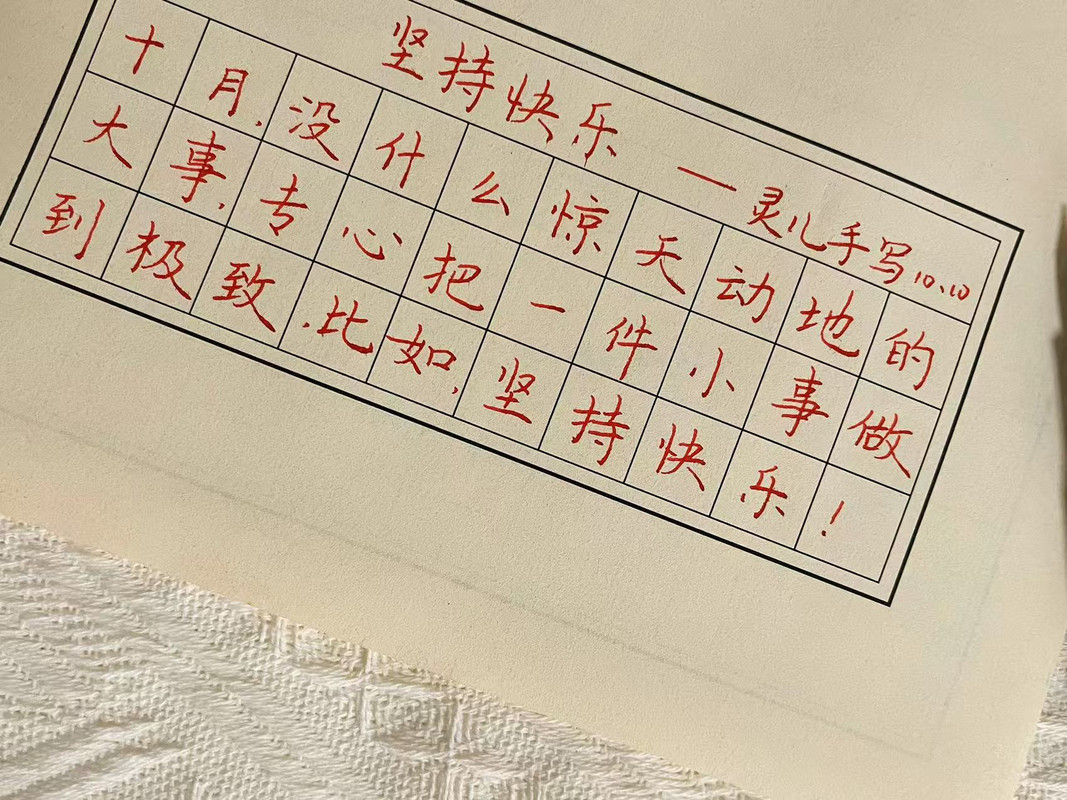 坚持快乐
——灵儿手写10.10
十月,没什么惊天动地的
大事,专心把一件小事做
到极致.比如,坚持快乐!